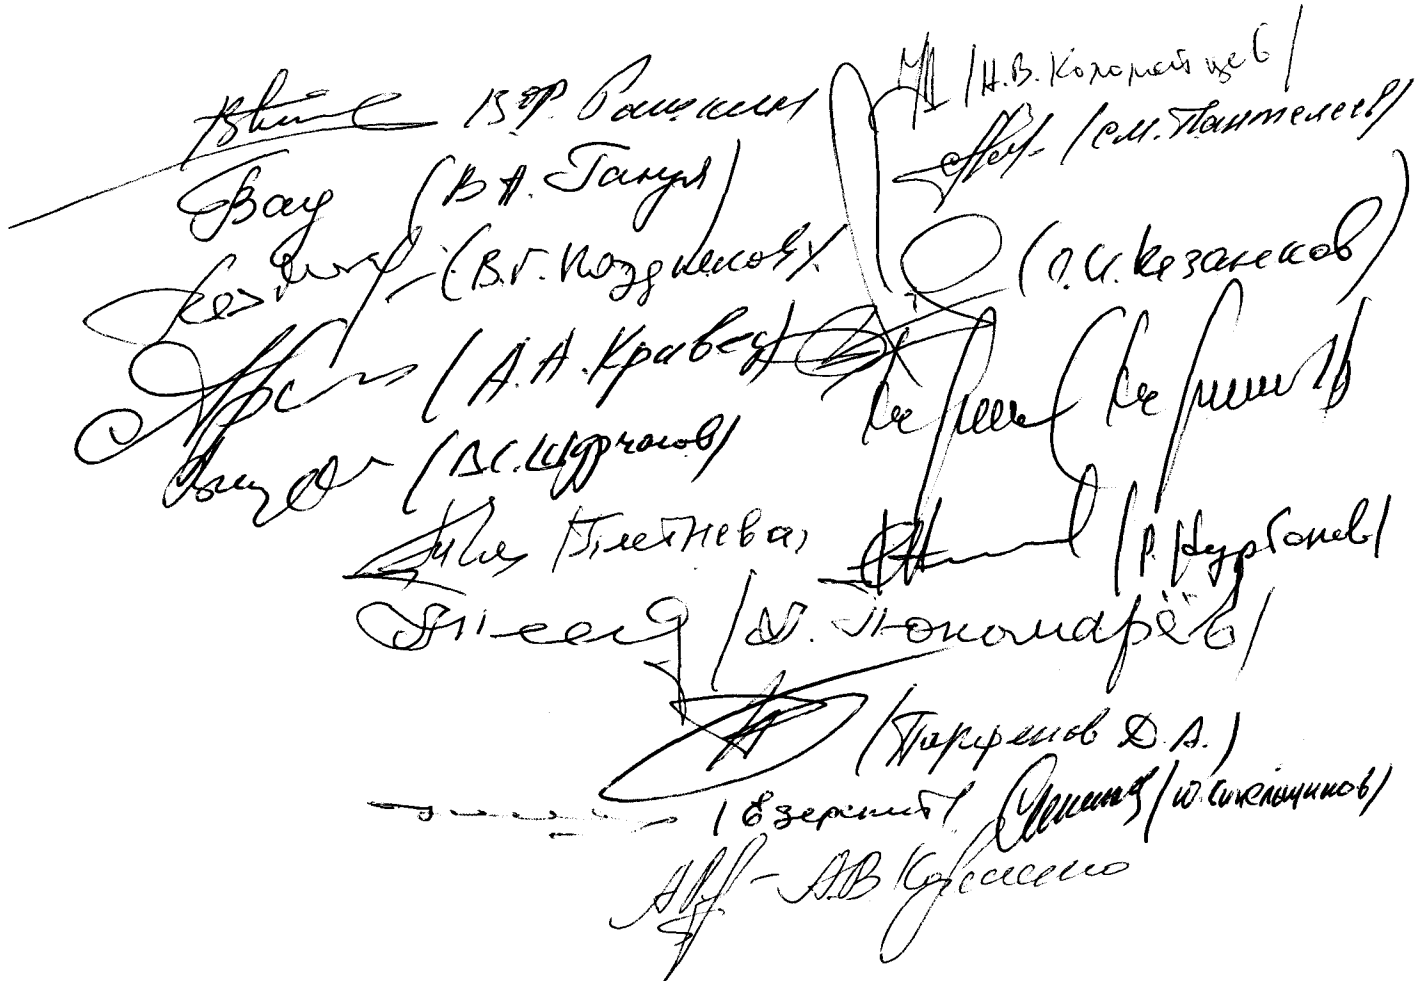 В.Ф. Рашкин
/Н.В. Коломейцев/
/С.М. Пантелеев/
(В.А. Ганзя)
(В.Г. Поздняков)
(С.И. Казанков)
(А.А. Кравец)
(В.С. Шурчанов)
Плетнева
/Р. Курбанов/
/А. Пономарёв/
(Парфенов Д.А.)
/Езерский/ /Ю. Синельщиков/
А.В. Корниенко